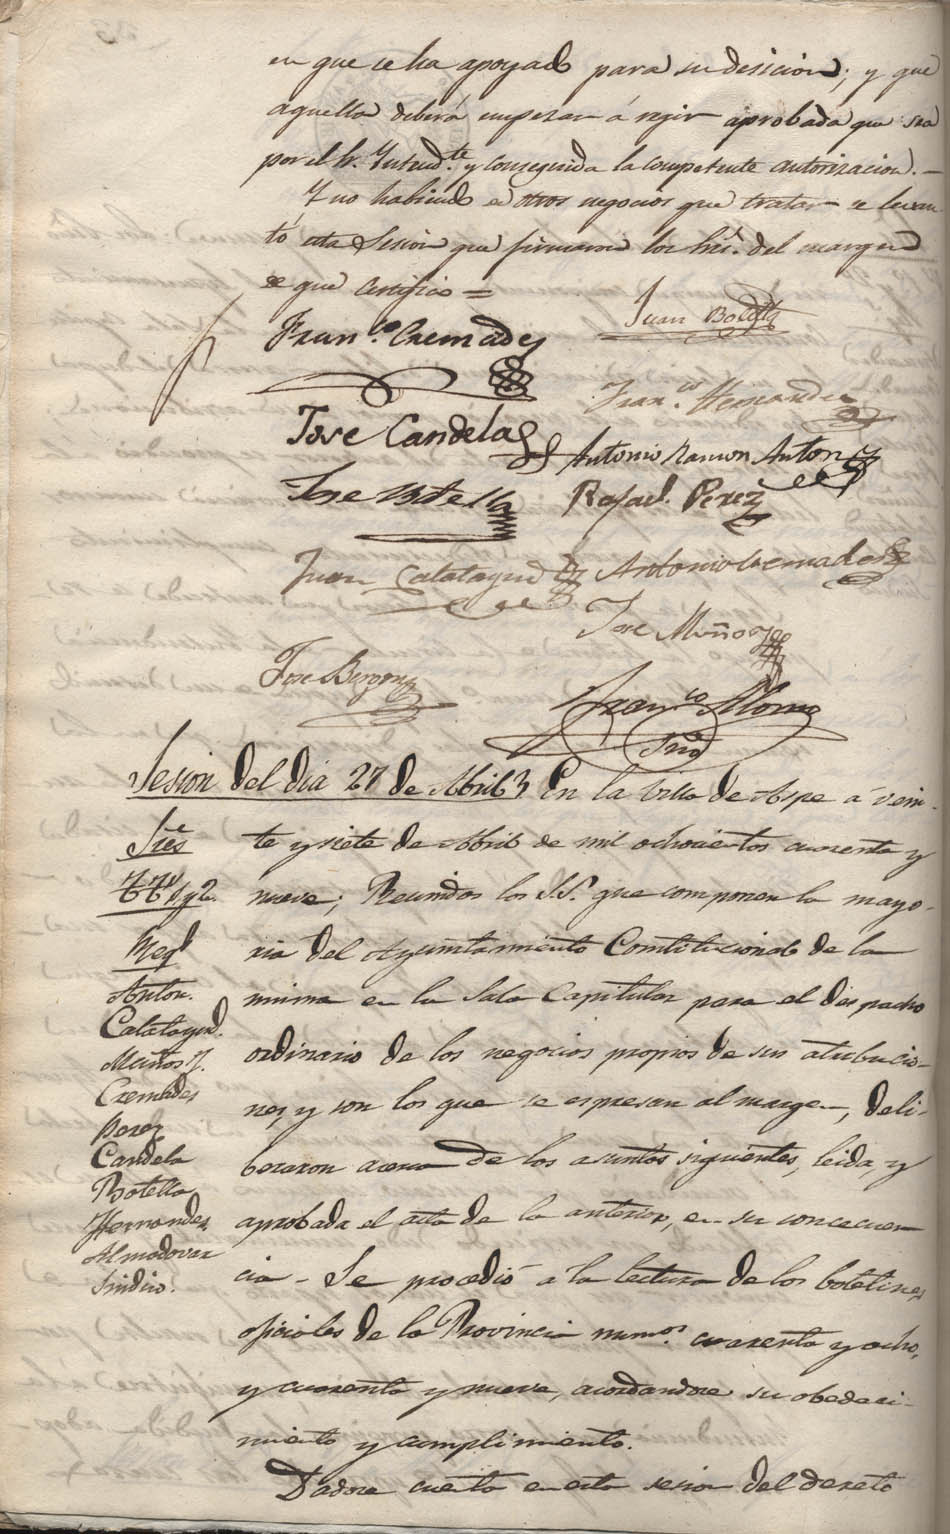 en que se ha apoyado para su desicion; y que
aquella deberá empezar á regir aprobada que sea
por el Sr. Intendte. y conseguida la competente autorizacion.
Y no habiendo otros negocios que tratar se levan
tó esta Sesion que firmaron los Sres. del margen
de que certifico =
Juan Botella
Franco. Cremades
Franco. Hernandez
Jose Candela
Antonio Ramon Anton
Jose Botella
Rafael Perez
Juan Calatayud
Antonio Cremades
Jose Muñoz
Jose
Franco.
Srio
Sesion del dia 27 de Abril} En la Villa de Aspe á vein-
Sres
te y siete de Abril de mil ochocientos cuarenta y
1 y 2.
nueve; Reunidos los S.S. que componen la mayo-
Regs
ria del Ayuntamiento Constitucional de la
Anton.
misma en la Sala Capitular para el despacho
Calatayud.
ordinario de los negocios propios de sus atribucio-
Muños
Cremades
nes, y son los que se espresan al margen, deli-
Perez
Candela
beraron acerca de los asuntos siguientes, leida, y
Botella
Hernandez
aprobada el acta de la anterior, en su concecuen
Almodovar
Sindico.
cia - Se procedió á la lectura de los boletines
oficiales de la Provincia numos. cuarenta y ocho,
y cuarenta y nueve, acordandose su obedeci-
miento y cumplimiento.
Dadose cuenta en esta sesion del decreto